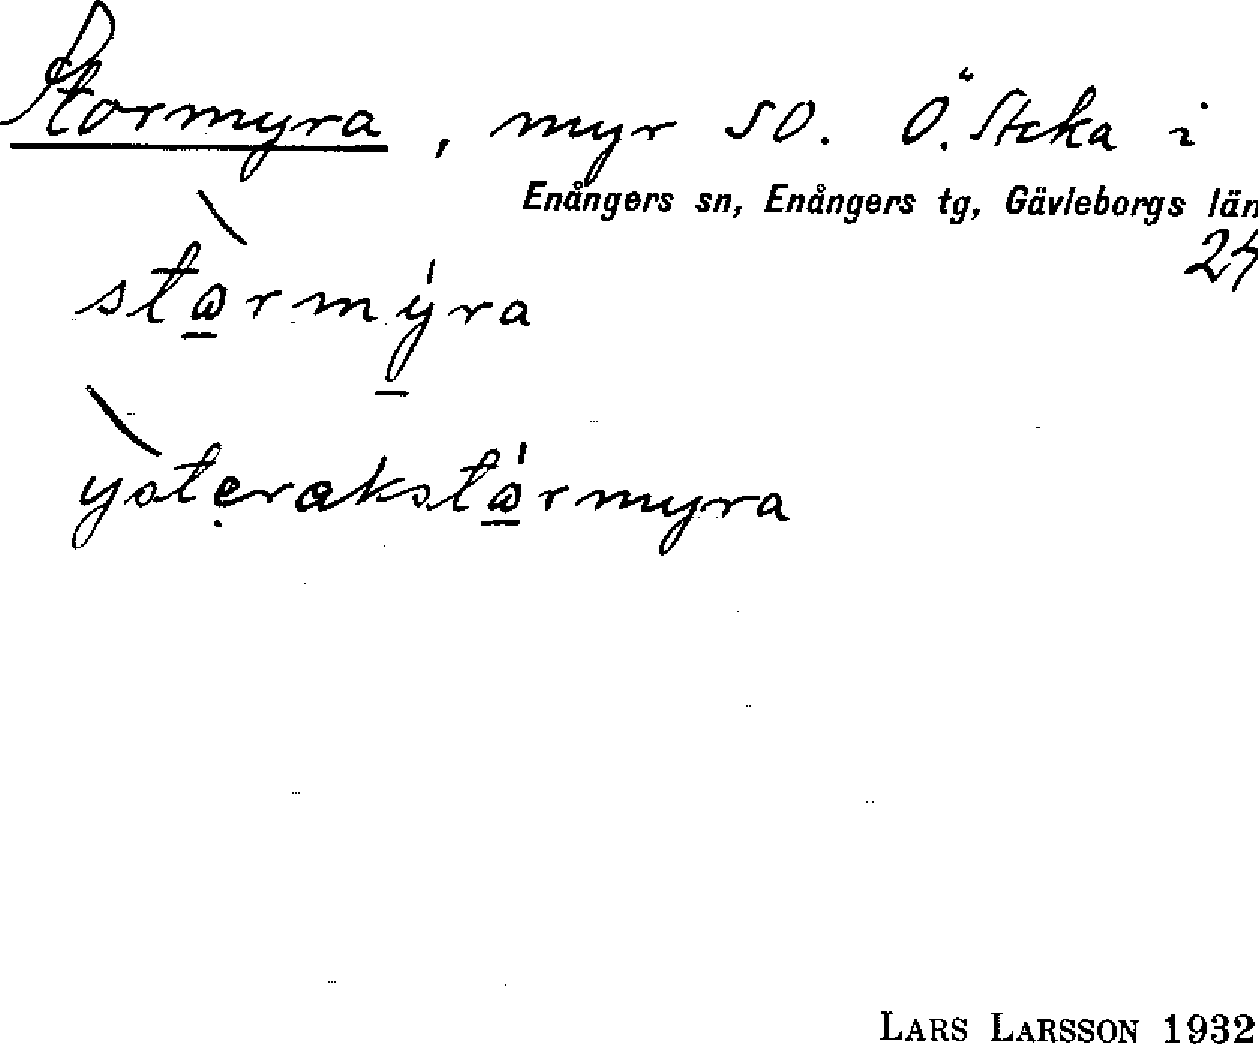 Stormyra, myr SO. Ö. Steka i
Enångers sn, Enångers tg, Gävleborgs län
24
stɷrmýra
ysterakstɷ́rmyra
LARS LARSSON 1932